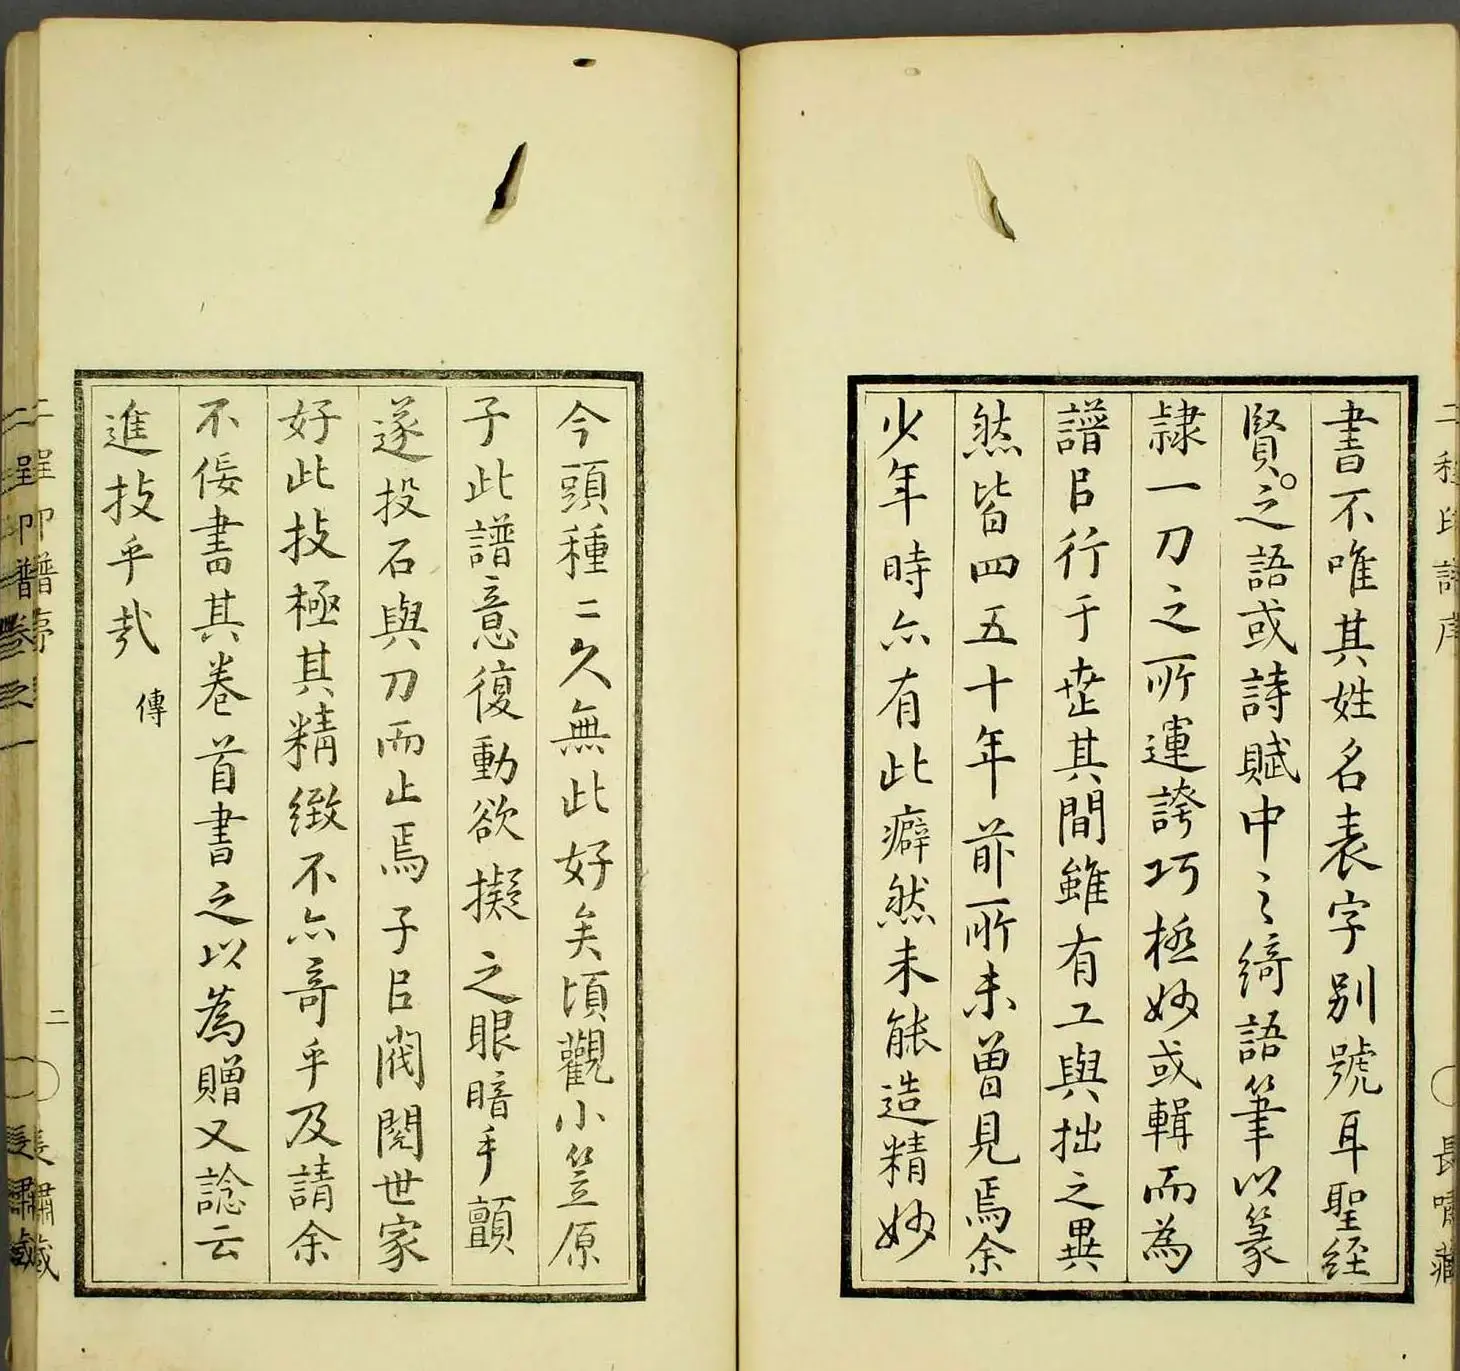 書不唯其姓名表字別號耳聖経
賢之語或詩賦中之綺語筆以篆
隷一刀之所運誇巧極妙或輯而為
譜㠯行于世其間雖有工與拙之異
然皆四五十年前所未曽見焉余
少年時亦有此癖然未能造精妙
今頭種〻久無此好矣頃觀小笠原
子此譜意復動欲擬之眼暗手顫
遂投石與刀而止焉子㠯閥閲世家
好此技極其精緻不亦奇乎及請余
不佞書其卷首書之以為贈又諗云
進技乎哉
傳
二程印譜序
二
長嘯藏